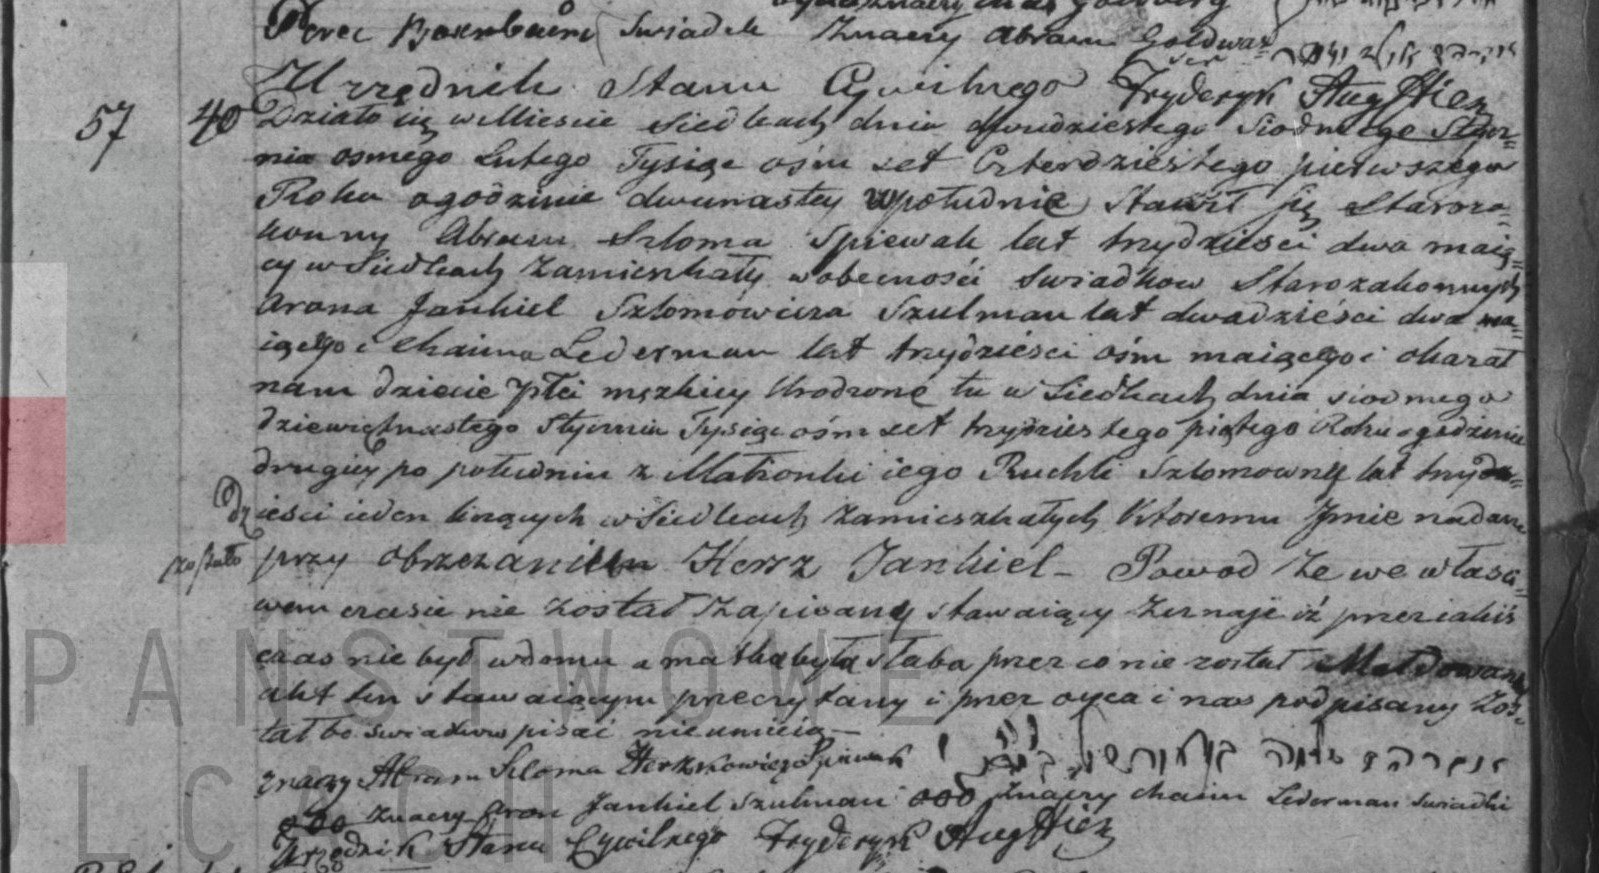 Perec Boxenbaum Swiadek Znaczy Abram Goldwas-
ser
Urzędnik Stanu Cywilnego Fryderyk
57 40 Działo się w Miescie Siedlcach dnia dwudziestego Siodmego Stycz-
nia osmego Lutego Tysiąc ośm set Czterdziestego pierwszego
Roku o godzinie dwunastey w południe Stawił się Staroza-
konny Abram Szloma Spiewak lat trzydziesci dwa maią-
cy w Siedlcach Zamieszkały w obecności Swiadkow Starozakonnych
Arona Jankiel Szlomowicza Szulman lat dwadzieści dwa ma-
iącego i Chaima Lederman lat trzydziesci ośm maiącego i okazał
nam dziecie płci męzkiey Urodzone tu w Siedlcach dnia siodmego
dziewiętnastego Stycznia Tysiąc ośm set trzydziestego piątego Roku o godzinie
drugiey po południu z Małżonki iego Ruchli Szlomowny lat trzy-
dziesci ieden liczących w Siedlcach Zamieszkałych Ktoremu Jmie nadane
zostało przy obrzezaniu Hersz Jankiel – Powod że we właści-
wem czasie nie został Zapisany stawaiący zeznaje iż przez iakiś
czas nie był w domu a matka była słaba przez co nie został Meldowany
akt ten stawaiącym przeczytany i przez oyca i nas podpisany Zos-
tał bo swiadkowie pisać nie umieią –
znaczy Abram Szloma Herszkowicz Spiewak
ooo Znaczy Aron Jankiel Szulman ooo Znaczy Chaim Lederman Swiadki
Urzędnik Stanu Cywilnego Fryderyk
PAŃSTWOWE
OLCACH